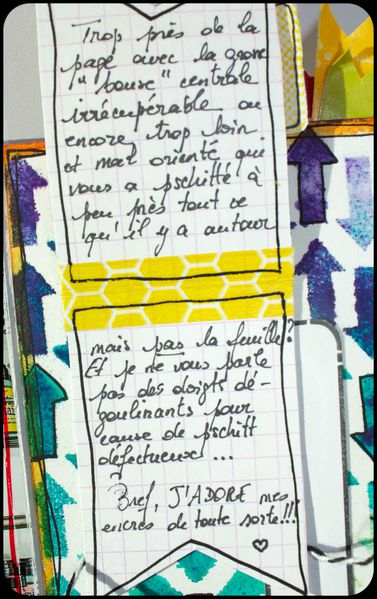 Trop près de la
page avec la grosse
"bouse" centrale
irrécupérable ou
encore trop loin
et mal orienté qui
vous a pschitté à
peu près tout ce
qu'il y a autour
mais pas la feuille?
Et je ne vous parle
pas des doigts dé-
goulinants pour
cause de pschitt
défectueux ...
Bref, J'ADORE mes
encres de toute sorte!!!